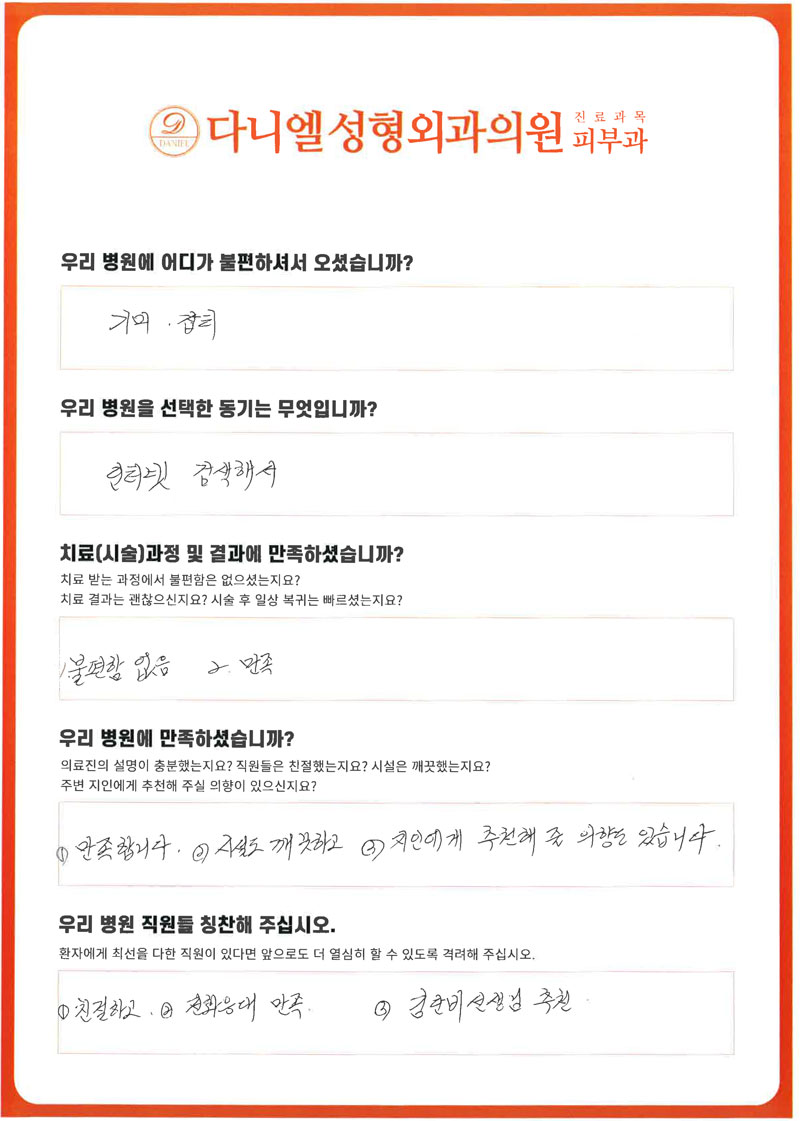 D
DANIEL
다니엘성형외과의원 진료과목 피부과
우리 병원에 어디가 불편하셔서 오셨습니까?
기미 . 잡티
우리 병원을 선택한 동기는 무엇입니까?
인터넷 검색해서
치료(시술)과정 및 결과에 만족하셨습니까?
치료 받는 과정에서 불편함은 없으셨는지요?
치료 결과는 괜찮으신지요? 시술 후 일상 복귀는 빠르셨는지요?
1.불편함 없음 2. 만족
우리 병원에 만족하셨습니까?
의료진의 설명이 충분했는지요? 직원들은 친절했는지요? 시설은 깨끗했는지요?
주변 지인에게 추천해 주실 의향이 있으신지요?
① 만족합니다. ② 시설도 깨끗하고 ③ 지인에게 추천해 줄 의향도 있습니다.
우리 병원 직원들 칭찬해 주십시오.
환자에게 최선을 다한 직원이 있다면 앞으로도 더 열심히 할 수 있도록 격려해 주십시오.
① 친절하고. ② 전화응대 만족. ③ 선생님 추천.